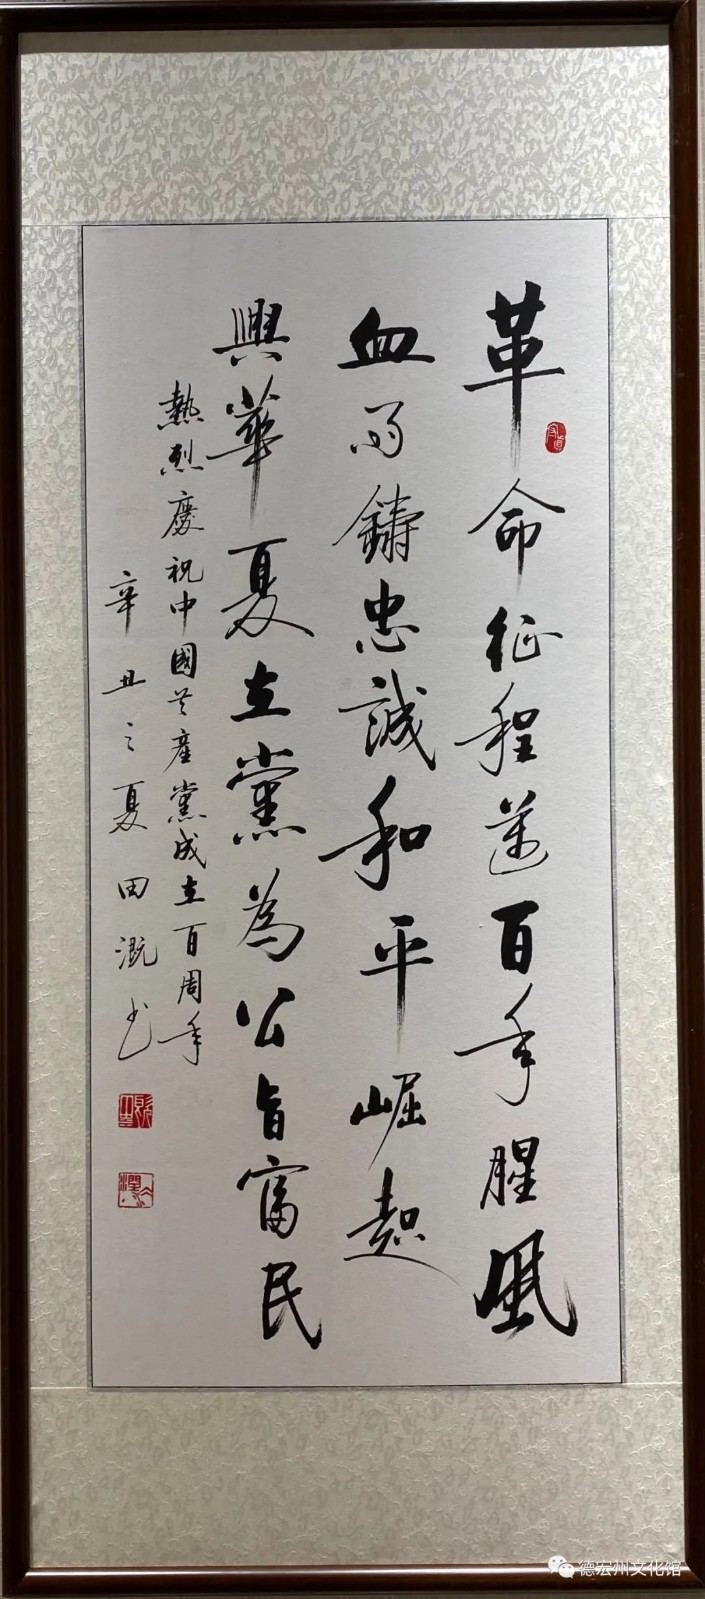 革命征程逆百年腥風
血雨鑄忠誠和平崛起
興華夏立黨為公旨富民
熱烈慶祝中國共產黨成立百周年
辛丑之夏田溉书
德宏州文化馆